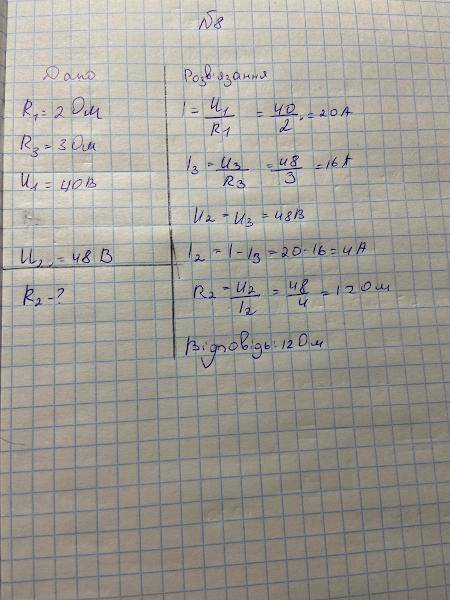 №8
Дано
R₁ = 2 Ом
R₃ = 3 Ом
U₁ = 40 В
U₂ = 48 В
R₂ - ?
Розв'язання
I = U₁/R₁ = 40/2 = 20 А
I₃ = U₃/R₃ = 48/3 = 16 А
U₂ = U₃ = 48 В
I₂ = I - I₃ = 20 - 16 = 4 А
R₂ = U₂/I₂ = 48/4 = 12 Ом
Відповідь: 12 Ом